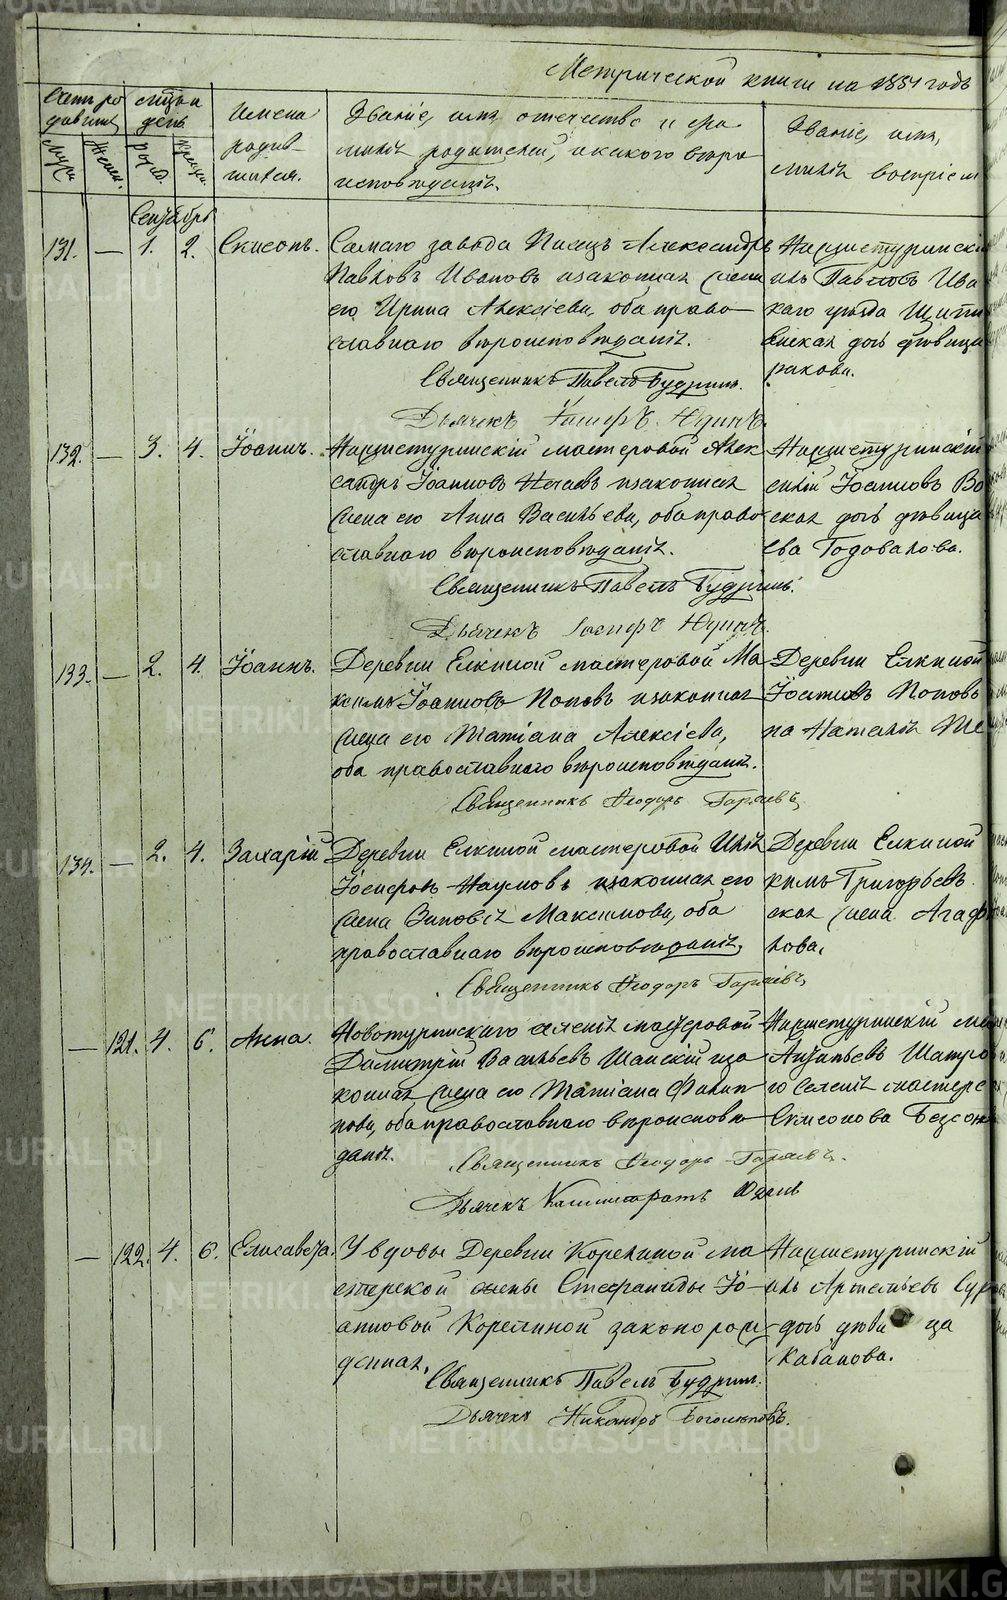 Метрической книги на 1851 годъ
Счетъ ро
дившихся
Муж.
Женск.
мѣсяцъ и
день
рожд.
крещ.
Имена
родив-
шихся.
Званіе, имя, отчество и фа
милія родителей, и какого вѣро
исповѣданія.
Званіе, имя,
милія воспріем
Сентябрь
131. — 1. 2. Симеонъ.
Самаго завода Писецъ Александръ
Павловъ Ивановъ изаконная жена
его Ирина Алексіева, оба право-
славнаго вѣроисповѣданія.
Священникъ Павелъ Будринъ.
Дьячекъ Іосифъ Юдинъ.
Нижнетуринскій
Павловъ Ива
каго уѣзда
дочь дѣвица
ракова.
132. — 3. 4. Іоаннъ.
Нижнетуринскій мастеровой Алек
сандръ Іоанновъ изаконная
жена его Анна Васильева, оба право-
славнаго вѣроисповѣданія.
Священникъ Павелъ Будринъ.
Дьячекъ Іосифъ Юдинъ.
Нижнетуринскій
Іоанновъ Во
ская дочь дѣвица
ева Годовалова.
133. — 2. 4. Іоаннъ.
Деревни Елкиной мастеровой Ма
ксимъ Іоанновъ Поповъ изаконная
жена его Татіана Алексіева,
оба православнаго вѣроисповѣданія.
Священникъ Ѳеодоръ Гаряевъ
Деревни Елкиной
Іоанновъ Поповъ
на Наталія
134. — 2. 4. Захарій
Деревни Елкиной мастеровой Илія
Іосифовъ Наумовъ изаконная его
жена Зиновія Максимова, оба
православнаго вѣроисповѣданія.
Священникъ Ѳеодоръ Гаряевъ
Деревни Елкиной
кимъ Григорьевъ
ская жена Агаф
нова.
— 121. 4. 6. Анна.
Новотуринскаго селенія мастеровой
Димитрій Васильевъ изо
конная жена его Татіана Филип
пова, оба православнаго вѣроисповѣ
данія.
Священникъ Ѳеодоръ Гаряевъ.
Дьячекъ Каллистратъ Юдинъ
Нижнетуринскій
го селенія мастерс
Симеонова
— 122. 4. 6. Елисавета.
У вдовы Деревни Корелиной ма
стерской жены Стефаниды Іо-
анновой Корелиной законорож
денная.
Священникъ Павелъ Будринъ.
Дьячекъ Никандръ Боголѣповъ.
Нижнетуринскій
Артемьевъ
дочь дѣвица
Кабанова.
METRIKI.GASO-URAL.RU